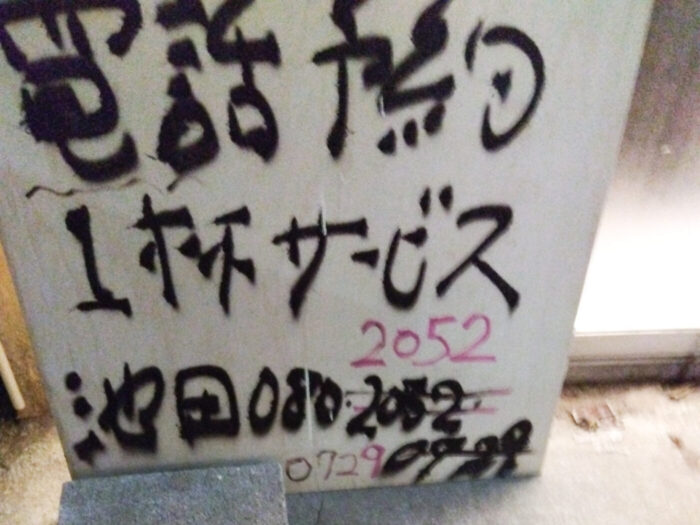 電話予約
1杯サービス
2052
池田 080-2052-
0729 0729